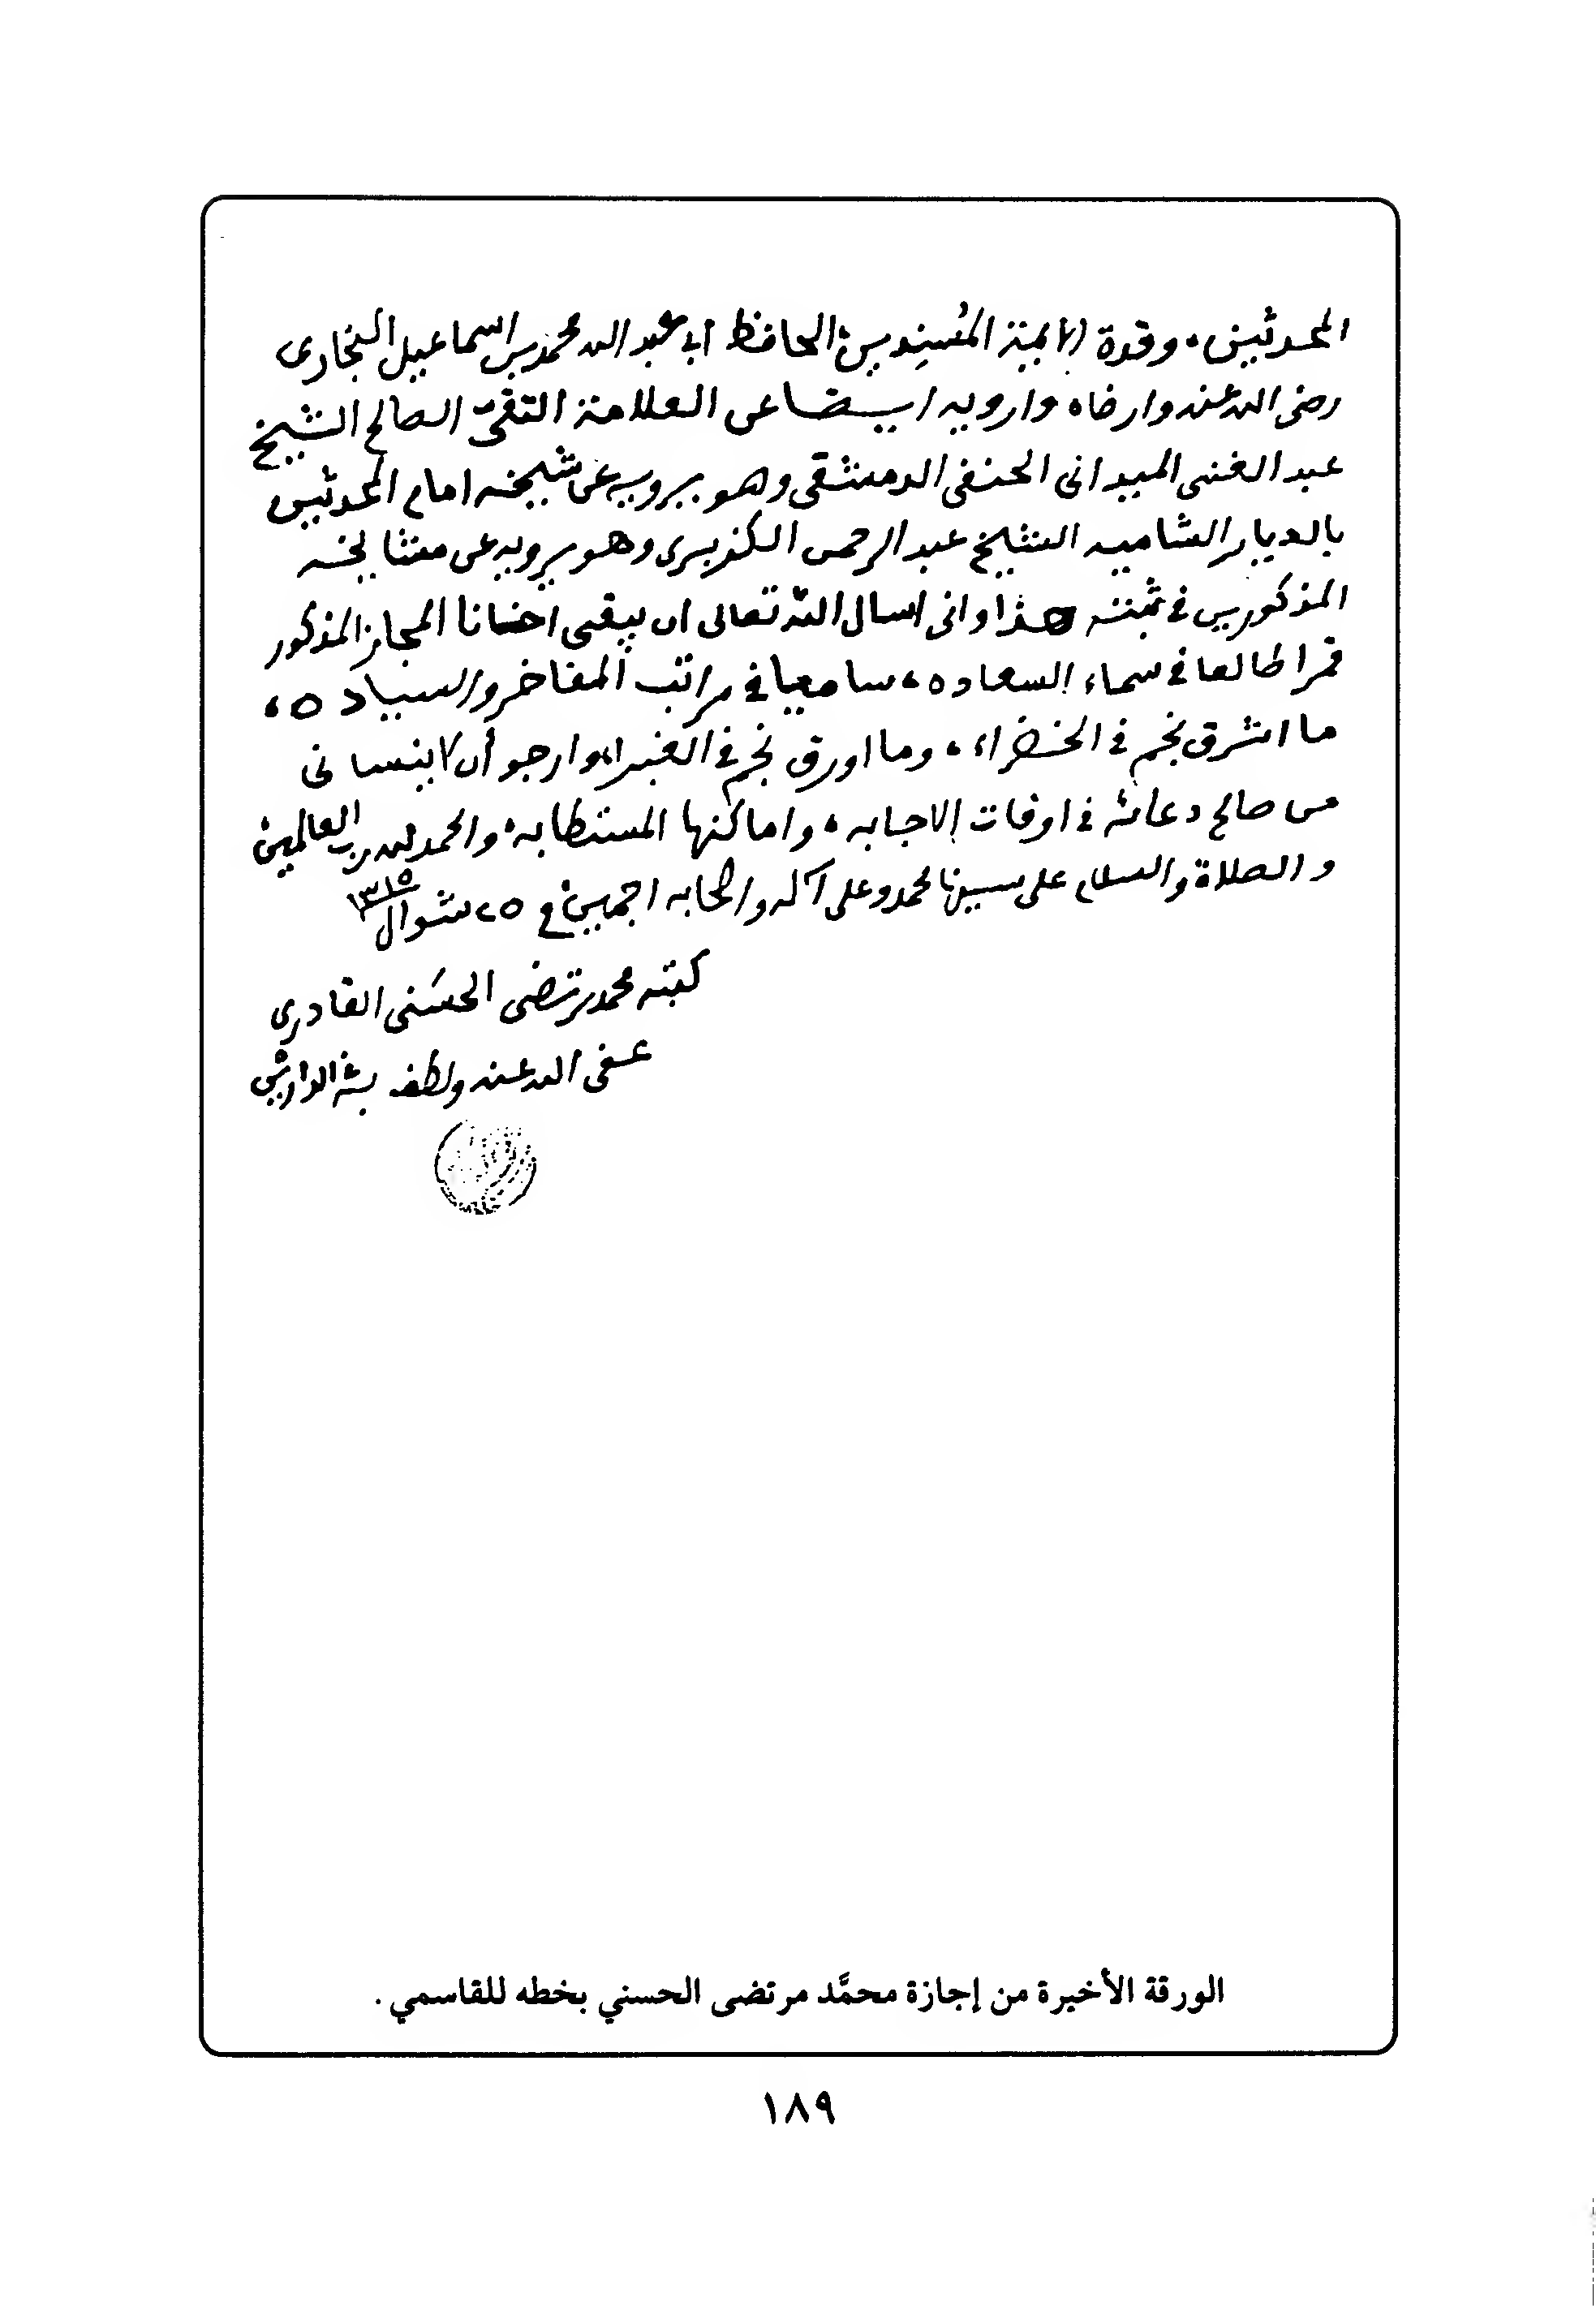 المحدثين، وقدوة الأيمة المُسنِدين، الحافظ أبى عبد الله محمد بن اسماعيل البخارى
رضى الله عنه وارضاه وارويه ايضا عن العلامة التقىّ الصالح الشيخ
عبد الغنى الميدانى الحنفى الدمشقى وهو يرويه عن شيخه امام المحدثين
بالديار الشاميه الشيخ عبد الرحمن الكزبرى وهو يرويه عن مشايخه
المذكورين فى ثبته هذا وانى اسال الله تعالى ان يبقى اخانا المجاز المذكور
قمرا طالعا فى سماء السعاده، ساميا فى مراتب المفاخر والسياده،
ما اشرق نجم فى الخضراء، وما اورق نجم فى الغبراء وارجو أن لا ينسانى
من صالح دعائه فى اوقات الاجابه، واماكنها المستطابه، والحمد لله رب العالمين
والصلاة والسلام على سيدنا محمد وعلى آله واصحابه اجمعين فى ٢٥ شوال ١٣١٥
كتبه محمد مرتضى الحسَنى القادرى
عفى الله عنه ولطف به فى الدارين
الورقة الأخيرة من إجازة محمَّد مرتضى الحسني بخطه للقاسمي .
١٨٩